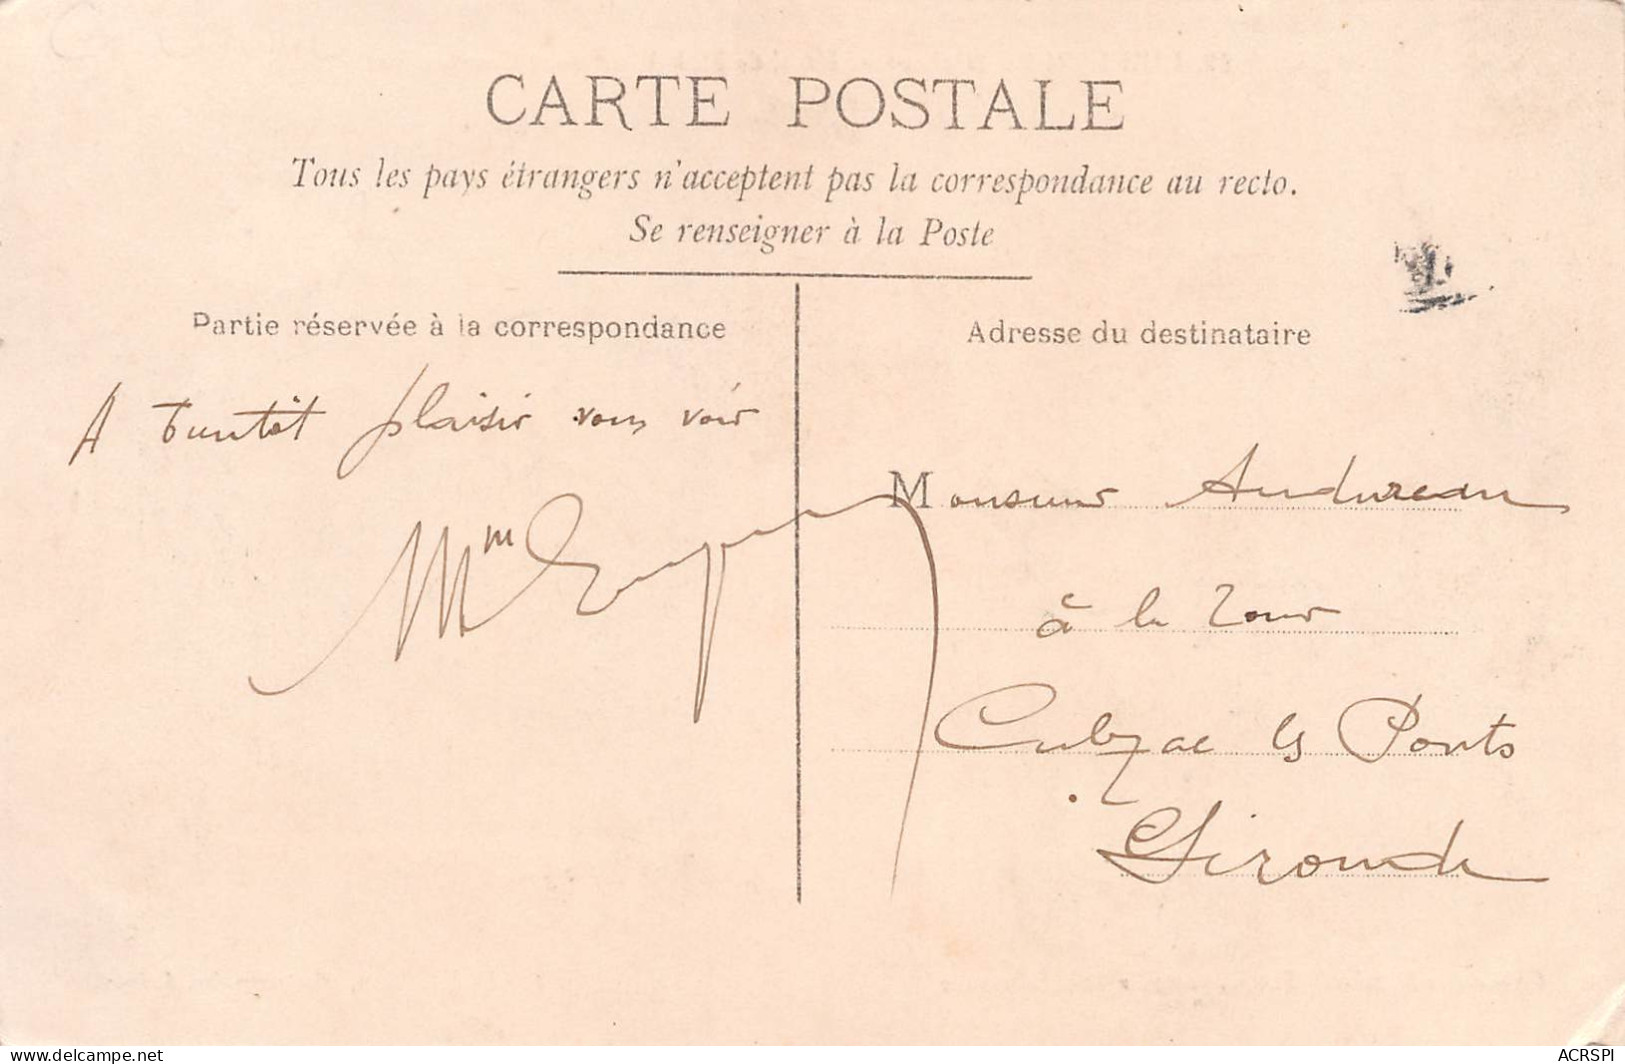 CARTE POSTALE
Tous les pays étrangers n'acceptent pas la correspondance au recto.
Se renseigner à la Poste
Partie réservée à la correspondance
Adresse du destinataire
A bientôt plaisir vous voir
Monsieur Audureau
à la Tour
Cubzac les Ponts
Gironde
ACRSPI